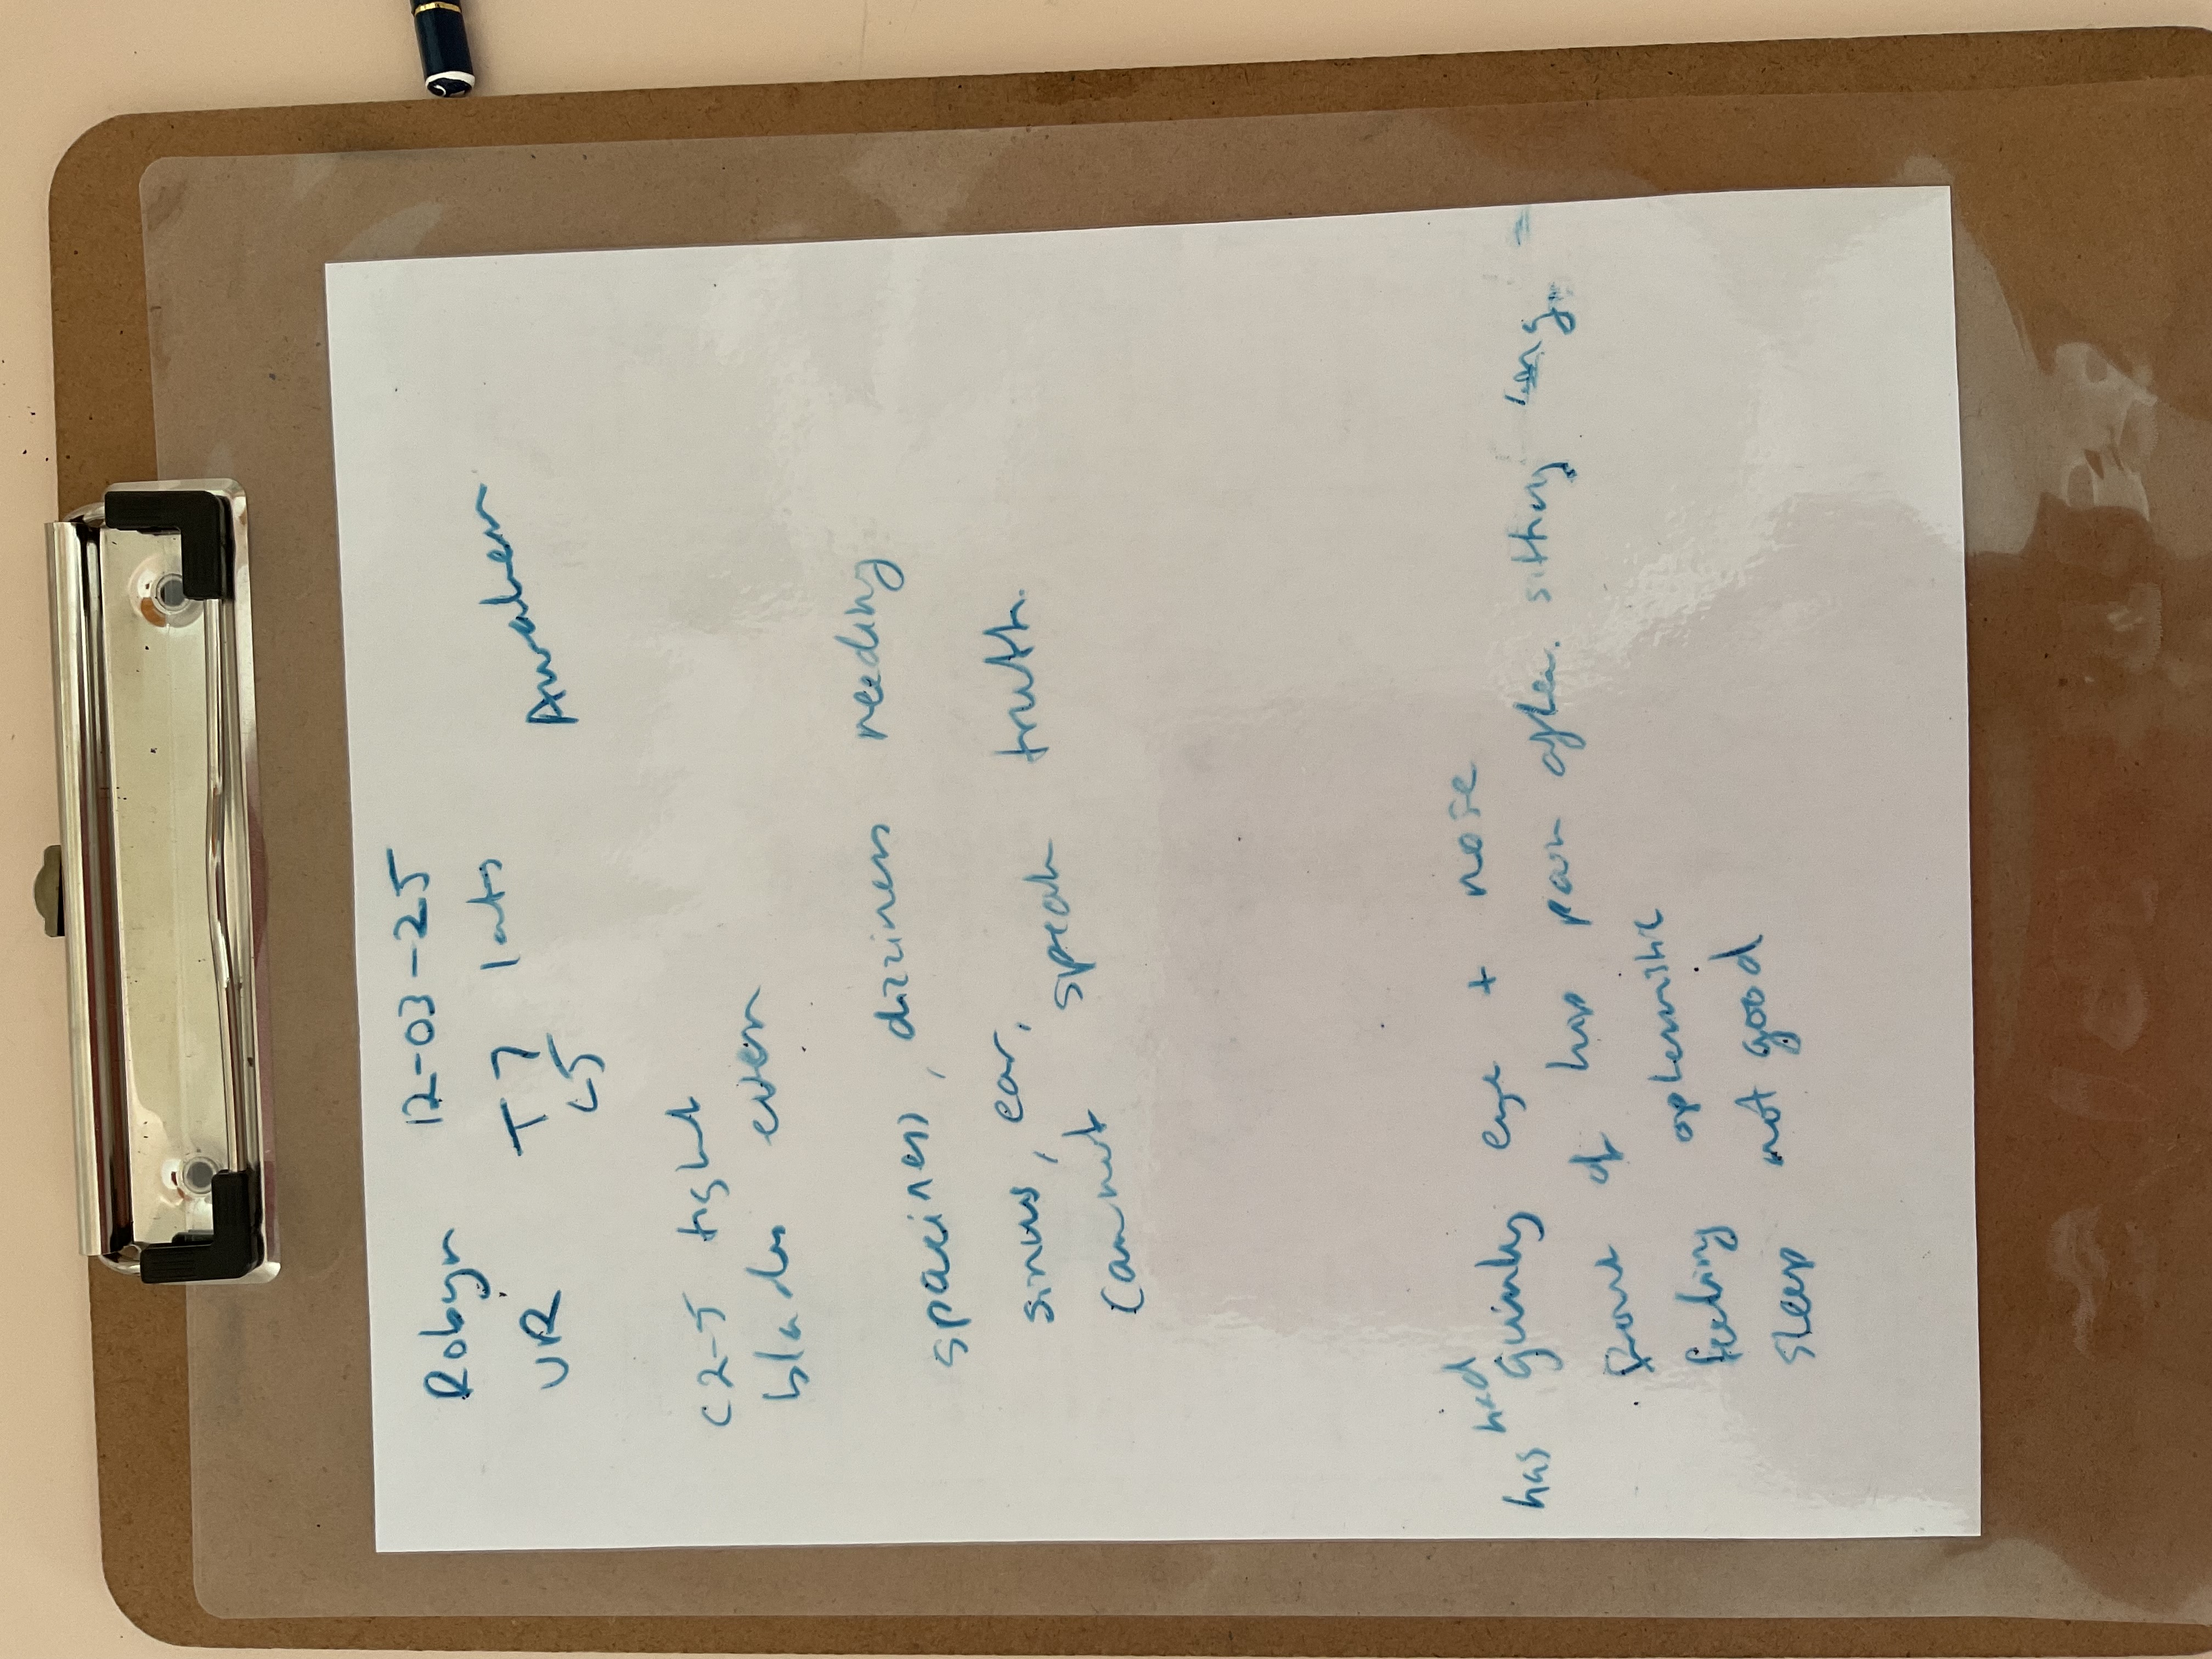 Robyn 12-03-25
UR T7 lats
L5 Awaken
C2-5 tight
blades even
spaciness, dizziness needing
sinus, ear,
cannot speak truth.
has had gunky eye + nose
front of hip pain after sitting long =
feeling optimistic
sleep not good